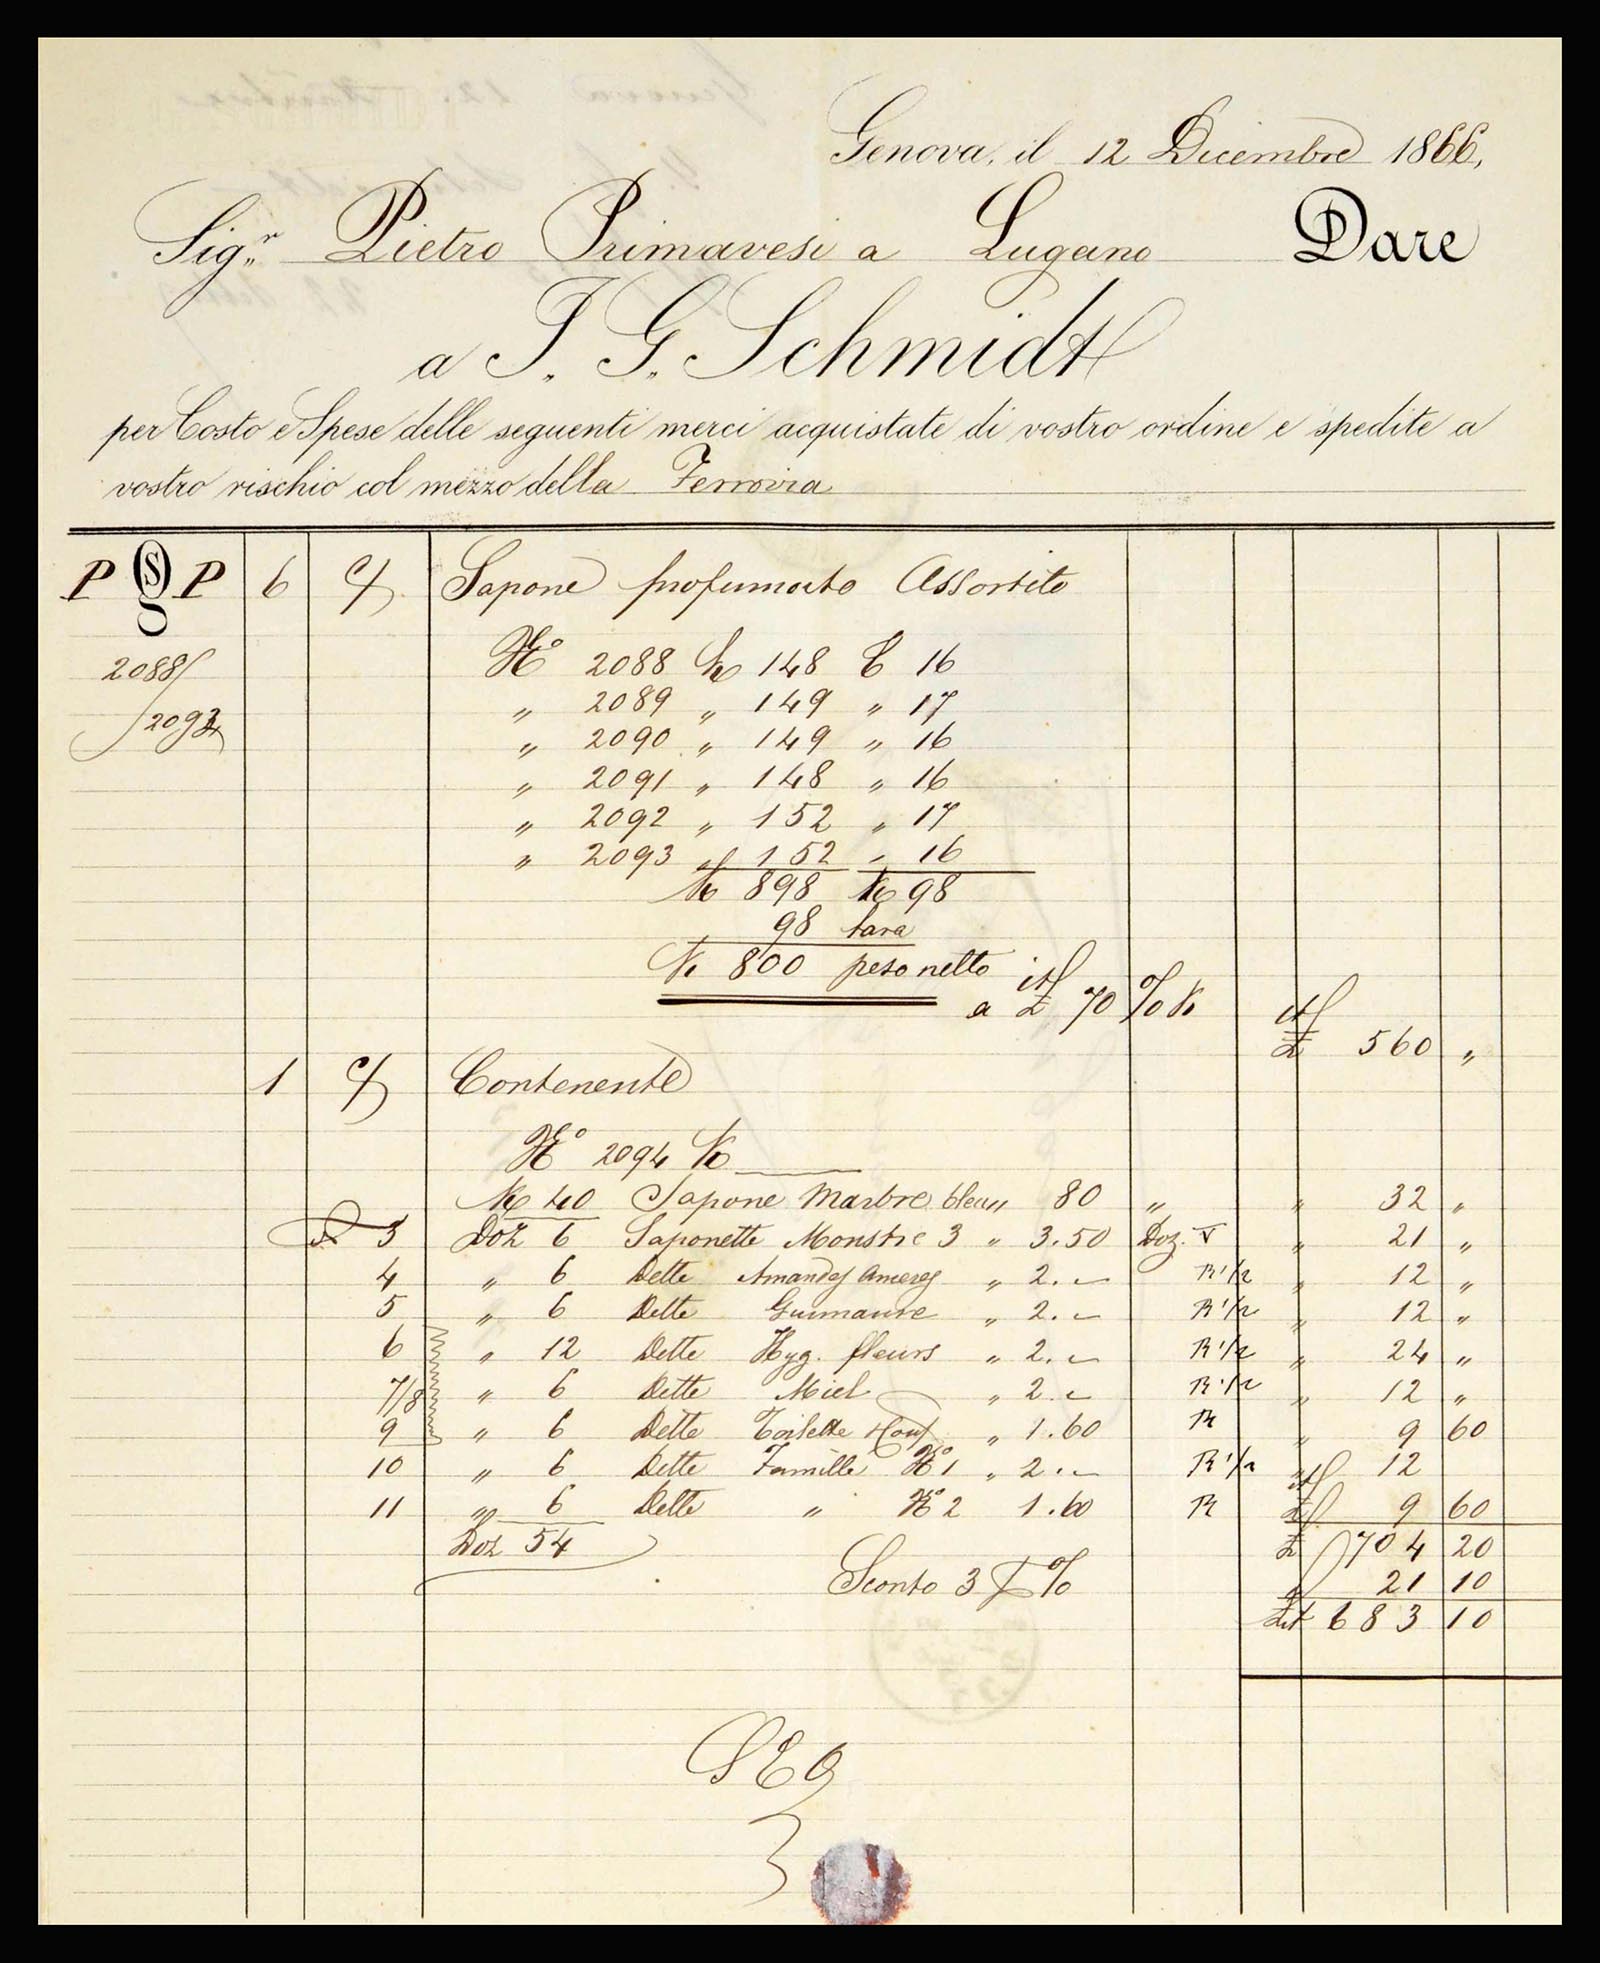 Genova, il 12 Dicembre 1866,
Sig.r Pietro Primavesi a Lugano Dare
a J. G. Schmidt
per Costo e Spese delle seguenti merci acquistate di vostro ordine e spedite a
vostro rischio col mezzo della Ferrovia
P S P 6 c/ Sapone profumato Assortito
2088/ No 2088 Ko 148 T 16
" 2089 " 149 " 17
/2094 " 2090 " 149 " 16
" 2091 " 148 " 16
" 2092 " 152 " 17
" 2093 " 152 " 16
Ko 898 Ko 98
98 tara
Ko 800 peso netto
a it£ 70 % K
it£ 560 "
1 c/ Contenente
No 2094 Ko
Ko 40 Sapone Marbre bleu " 80 " " 32 "
3 Doz 6 Saponette Monstre 3 " 3.50 Doz. " 21 "
4 " 6 Dette Amandes Ameres " 2.- R 1/2 " 12 "
5 " 6 Dette Guimauve " 2.- R 1/2 " 12 "
6 " 12 Dette Hyg. fleurs " 2.- R 1/2 " 24 "
7/8 " 6 Dette Miel " 2.- R 1/2 " 12 "
9 " 6 Dette Toilette " 1.60 R " 9 60
10 " 6 Dette Famille No 1 " 2.- R 1/2 " 12
11 " 6 Dette " No 2 1.60 R it£ 9 60
Doz 54 £ 704 20
Sconto 3 % " 21 10
£it 683 10